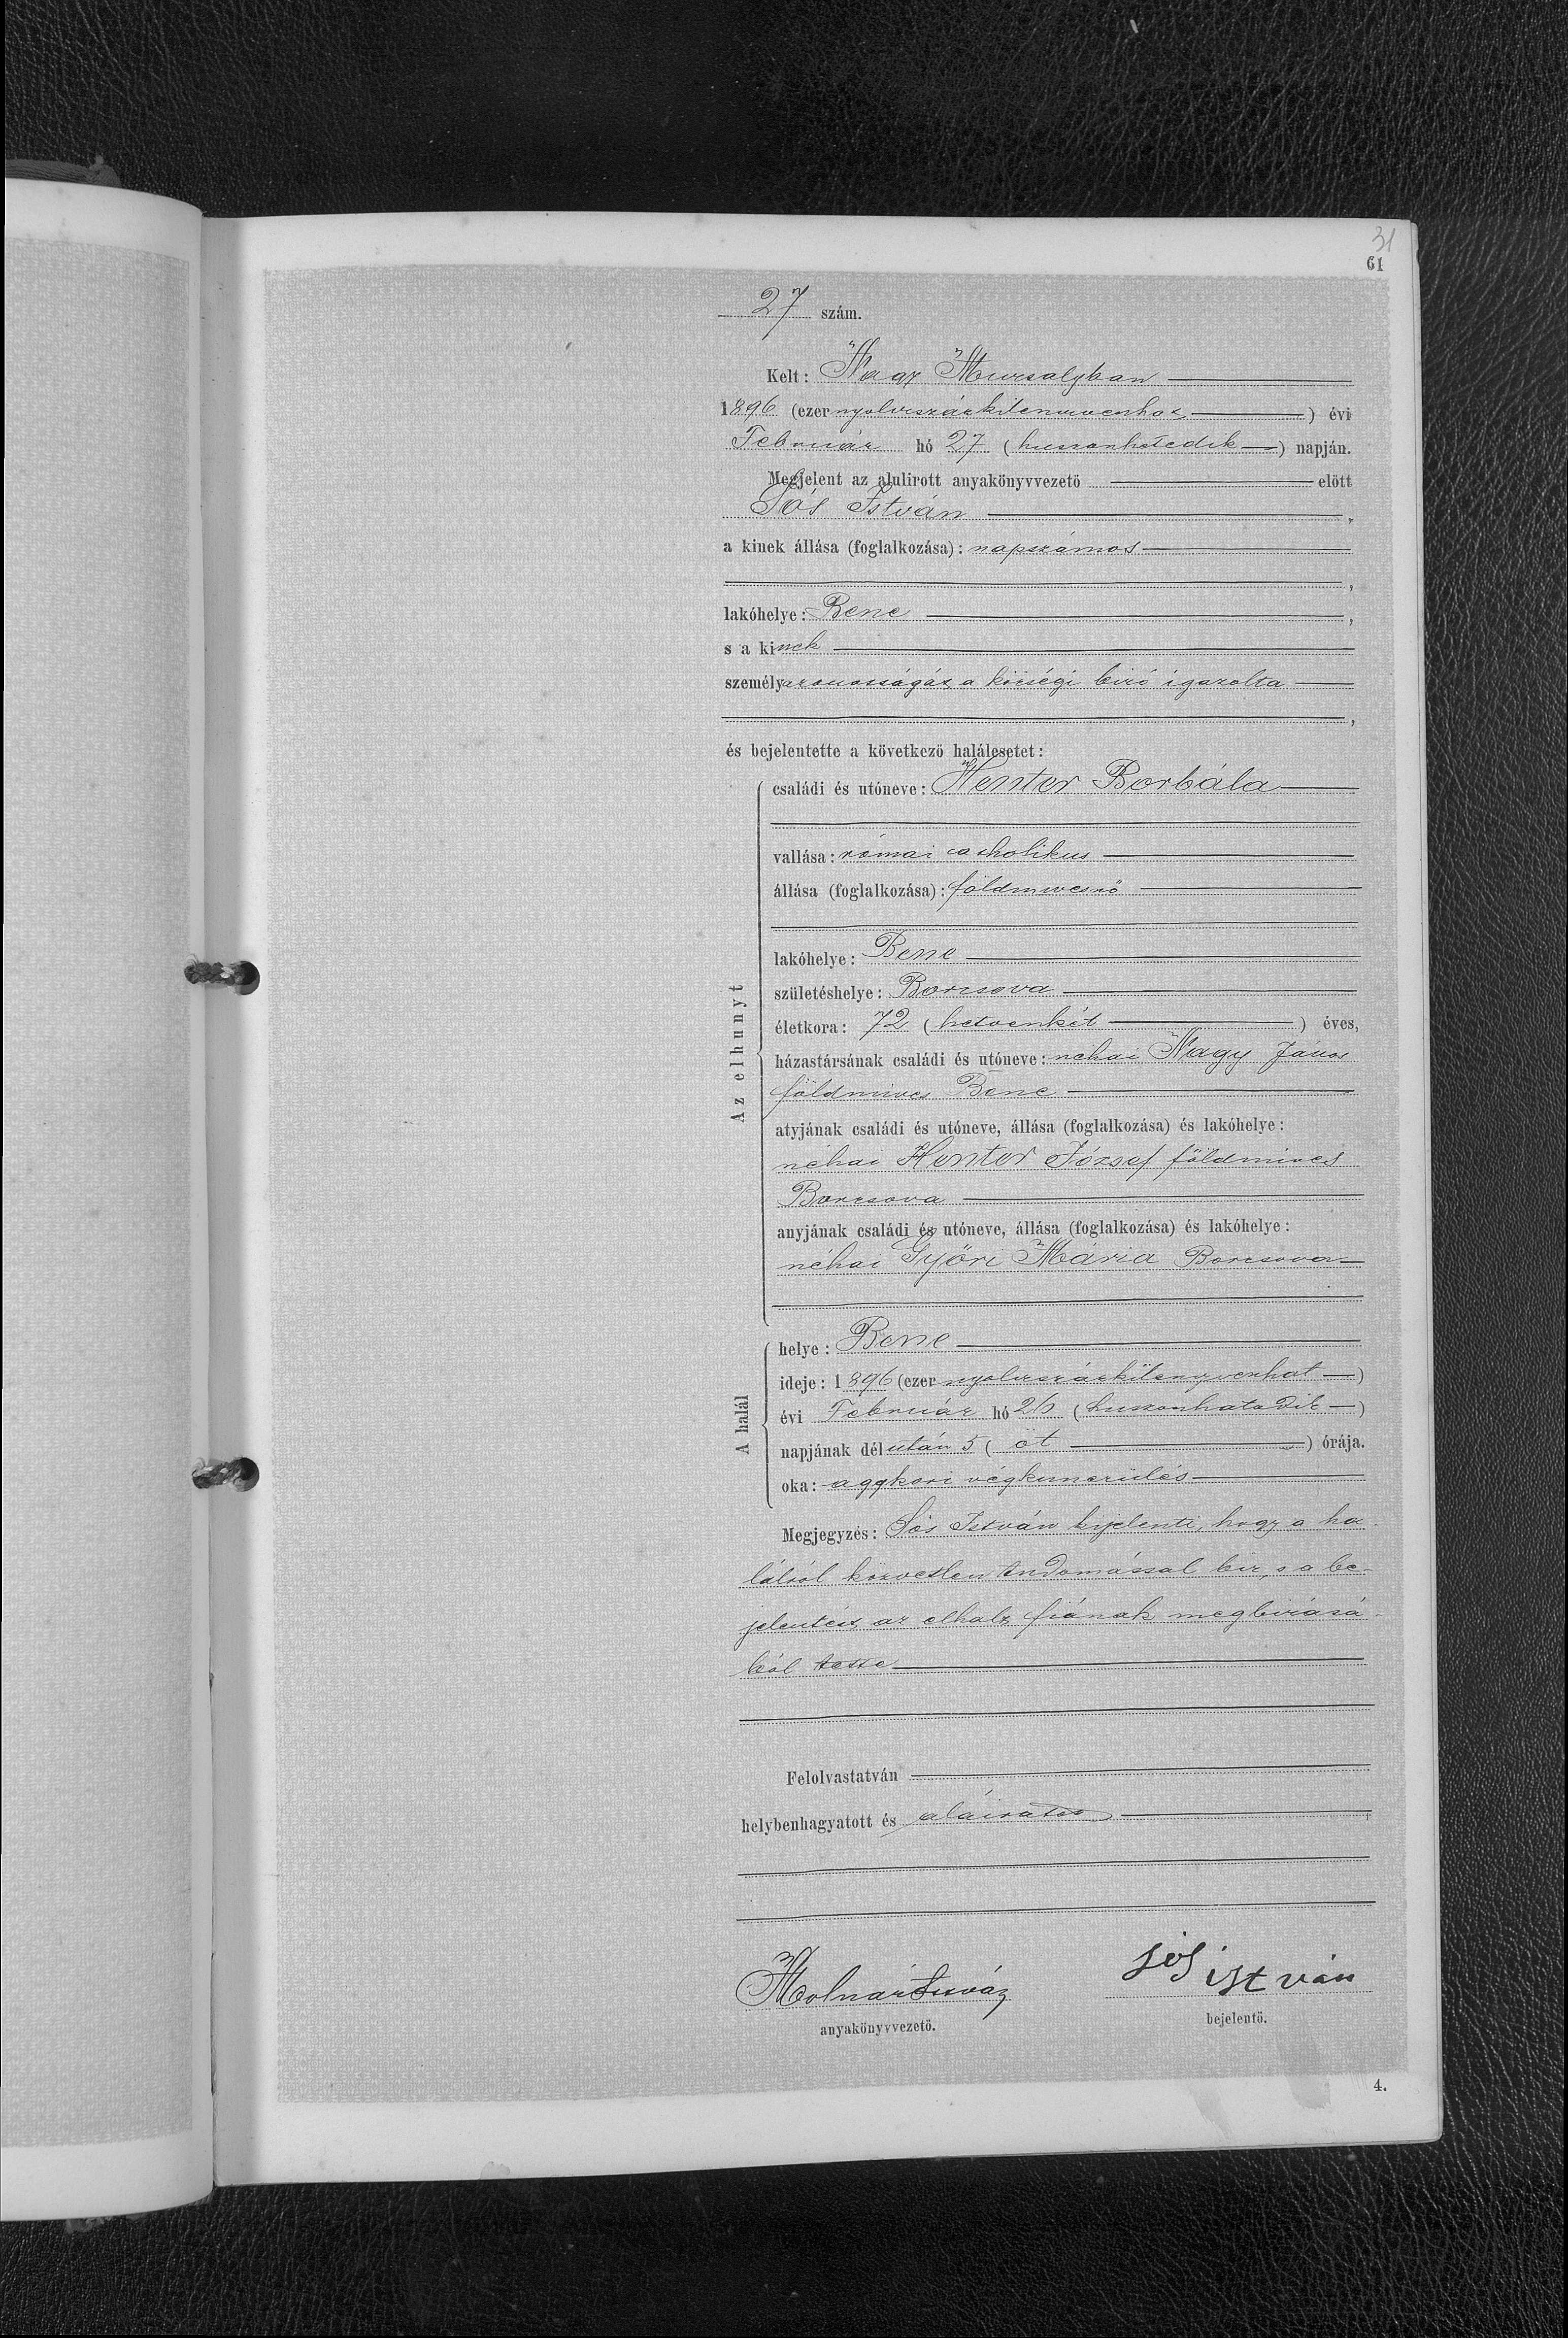 31
61
27 szám.
Kelt: Nagy Muzsalyban
1896 (ezer nyolcszázkilencvenhat) évi
Február hó 27 (huszonhetedik) napján.
Megjelent az alulirott anyakönyvvezető előtt
Sós István,
a kinek állása (foglalkozása): napszámos
,
lakóhelye: Bene,
s a kinek
személyazonosságát a községi biró igazolta
,
és bejelentette a következő halálesetet:
Az elhunyt
családi és utóneve: Henter Borbála
vallása: római catholikus
állása (foglalkozása): földmivesnő
lakóhelye: Bene
születéshelye: Borzsova
életkora: 72 (hetvenkét) éves,
házastársának családi és utóneve: néhai Nagy János
földmives Bene
atyjának családi és utóneve, állása (foglalkozása) és lakóhelye:
néhai Henter József földmives
Borzsova
anyjának családi és utóneve, állása (foglalkozása) és lakóhelye:
néhai Győri Mária Borzsova
A halál
helye: Bene
ideje: 1896 (ezer nyolcszázkilencvenhat)
évi Február hó 26 (huszonhatodik)
napjának délután 5 (öt) órája.
oka: aggkori végkimerülés
Megjegyzés: Sós István kijelenti, hogy a ha-
lálról közvetlen tudomással bir, s a be-
jelentést az elhalt fiának megbizásá-
ból tette
Felolvastatván
helybenhagyatott és aláiratott
Molnár István
anyakönyvvezető.
sós istván
bejelentő.
4.